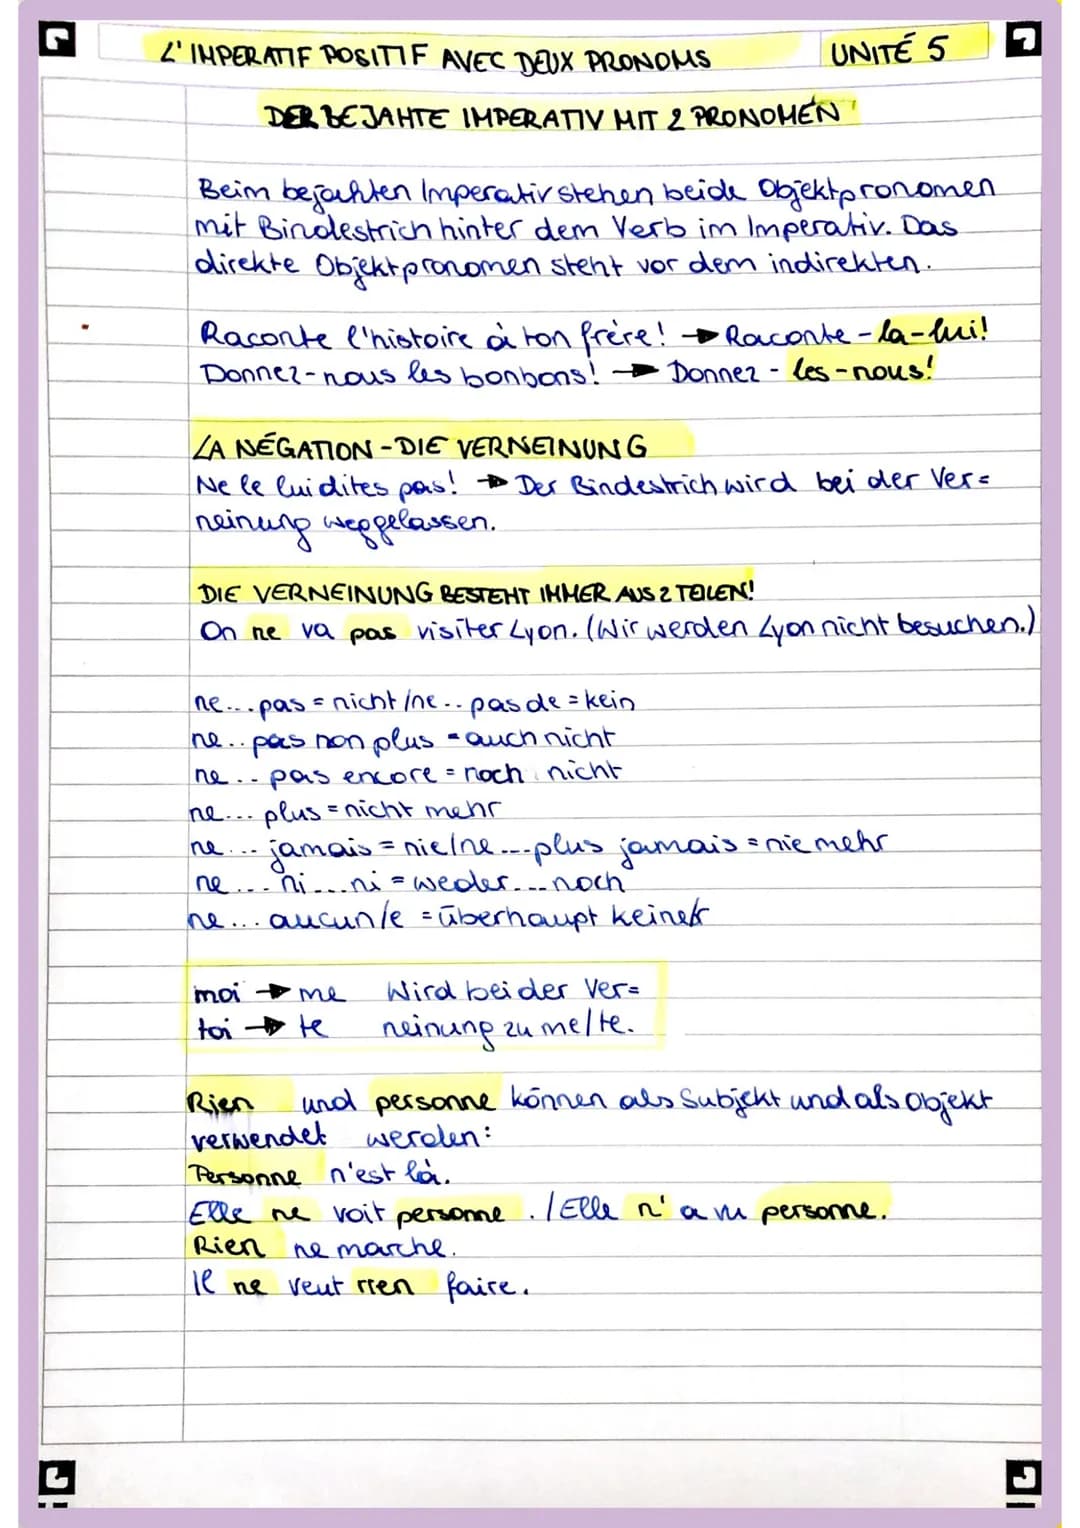 L'IMPERATIF POSITIF AVEC DEUX PRONOMS UNITÉ 5
DER BEJAHTE IMPERATIV MIT 2 PRONOMEN
Beim bejahten Imperativ stehen beide Objektpronomen
mit Bindestrich hinter dem Verb im Imperativ. Das
direkte Objektpronomen steht vor dem indirekten.
Raconte l'histoire à ton frère! → Raconte-la-lui!
Donnez-nous les bonbons! → Donnez-les-nous!
LA NÉGATION - DIE VERNEINUNG
Ne le lui dites pas! → Der Bindestrich wird bei der Ver=
neinung weggelassen.
DIE VERNEINUNG BESTEHT IMMER AUS 2 TEILEN!
On ne va pas visiter Lyon. (Wir werden Lyon nicht besuchen.)
ne... pas = nicht / ne.. pas de = kein
ne.. pas non plus = auch nicht
ne... pas encore = noch nicht
ne... plus = nicht mehr
ne... jamais = nie / ne... plus jamais = nie mehr
ne... ni... ni = weder... noch
ne... aucun/e = überhaupt keine/r
moi → me Wird bei der Ver=
toi → te neinung zu me/te.
Rien und personne können als Subjekt und als Objekt
verwendet werden:
Personne n'est là.
Elle ne voit personne. / Elle n'a vu personne.
Rien ne marche.
Il ne veut rien faire.